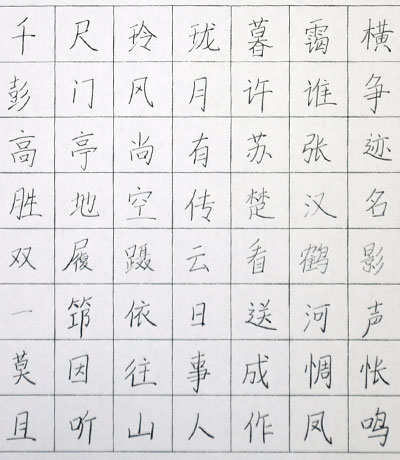 千尺玲珑暮霭横
彭门风月许谁争
高亭尚有苏张迹
胜地空传楚汉名
双履蹑云看鹤影
一筇依日送河声
莫因往事成惆怅
且听山人作凤鸣